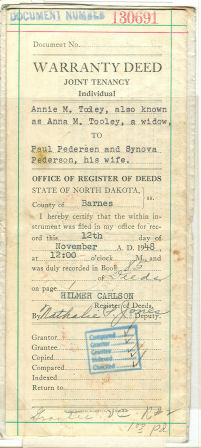 DOCUMENT NUMBER 130691
Document No.
WARRANTY DEED
JOINT TENANCY
Individual
Annie M. Tooley, also known
as Anna M. Tooley, a widow,
TO
Paul Pedersen and Synova
Pederson, his wife.
OFFICE OF REGISTER OF DEEDS
STATE OF NORTH DAKOTA, } ss.
County of Barnes
I hereby certify that the within in-
strument was filed in my office for rec-
ord this 12th day of
November A. D. 1948
at 12:00 o'clock M., and
was duly recorded in Book 83
of Deeds
on page
HILMER CARLSON
Register of Deeds,
By Nathalie F. Jones Deputy.
Grantor
Grantee
Copied
Compared
Indexed
Return to
Compared
Grantor
Grantee
Indexed
Checked